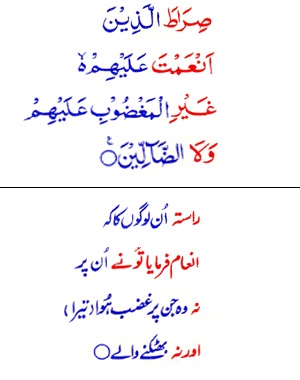 صِرَاطَ الَّذِيْنَ
اَنْعَمْتَ عَلَيْهِمْ ۙ۬
غَيْرِ الْمَغْضُوْبِ عَلَيْهِمْ
وَلَا الضَّآلِّيْنَ ۠
راستہ اُن لوگوں کا کہ
انعام فرمایا تُو نے اُن پر
نہ وہ جن پر غضب ہُوا (تیرا)
اور نہ بھٹکنے والے ○